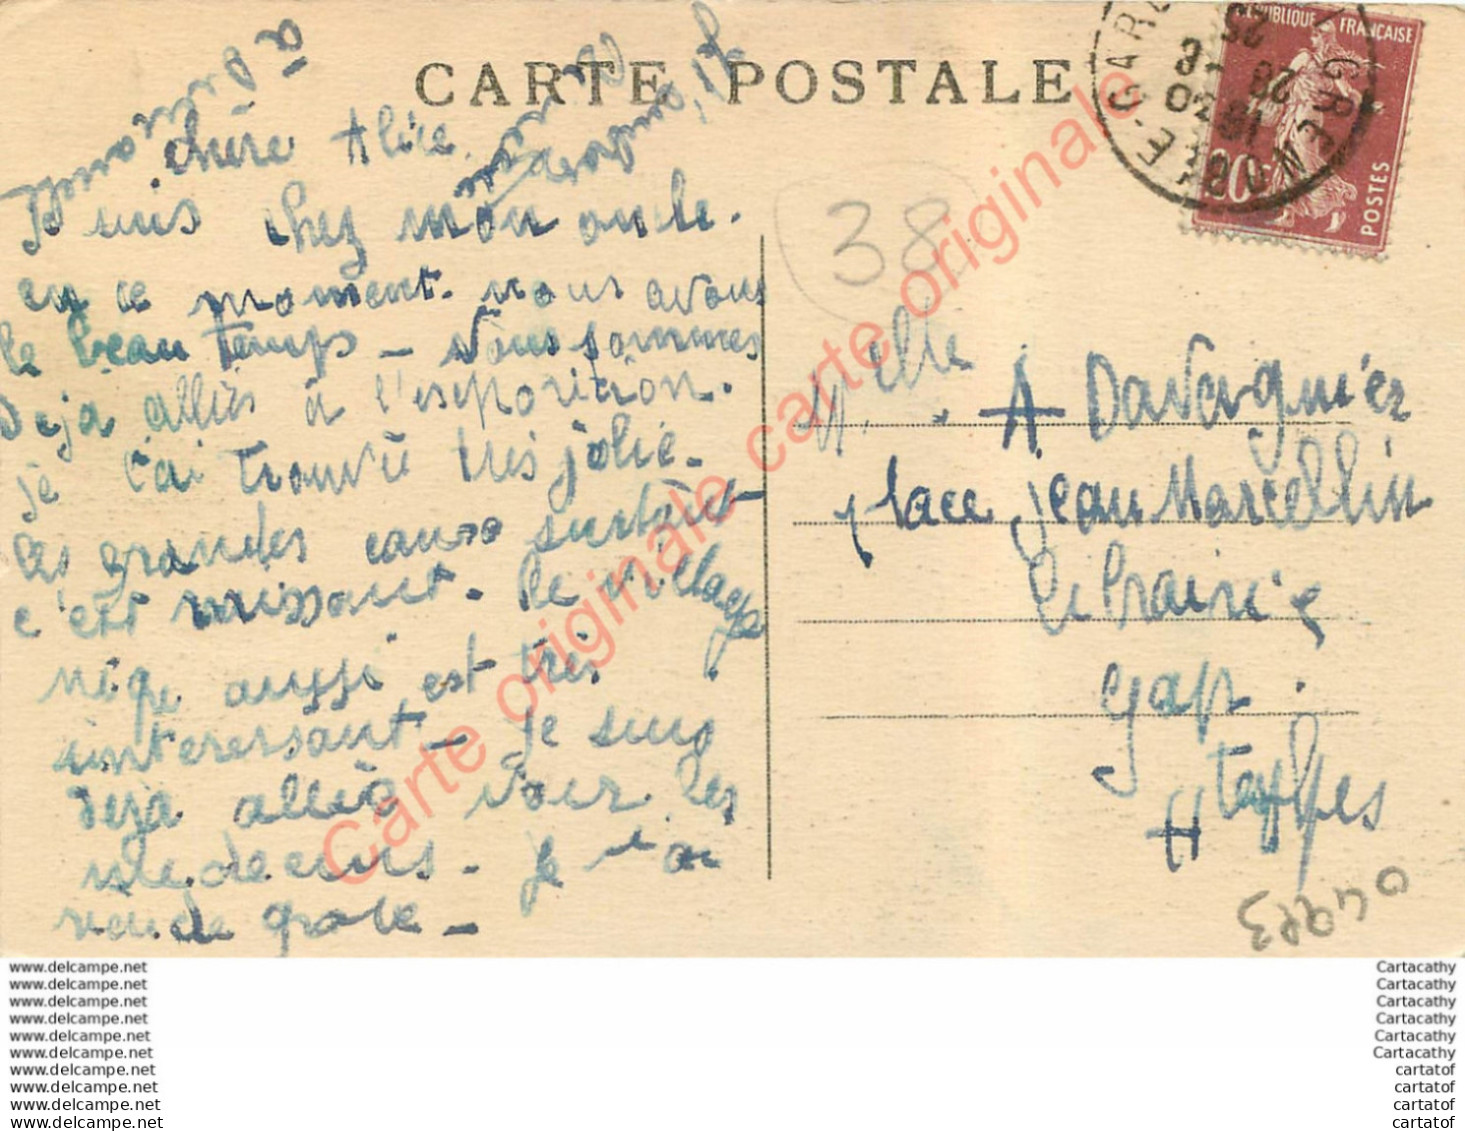 CARTE POSTALE
chère Alice
Je suis chez mon oncle.
en ce moment. nous avons
le beau temps - Nous sommes
Déjà alliés à l'exposition.
je l'ai trouvé très jolie.
les grandes eaux surtout
c'est
. le village
nègre aussi est très
interersant - je suis
deja alliés voir les
. je
38
Mlle A Davagnier
place Jean Marcellin
librairie
Gap.
Htes Alpes
RÉPUBLIQUE FRANÇAISE
20c
POSTES
GRENOBLE-GARE
18 30
28 - 8
25
04983
Carte originale carte originale Carte originale carte originale
www.delcampe.net
www.delcampe.net
www.delcampe.net
www.delcampe.net
www.delcampe.net
www.delcampe.net
www.delcampe.net
www.delcampe.net
www.delcampe.net
www.delcampe.net
Cartacathy
Cartacathy
Cartacathy
Cartacathy
Cartacathy
Cartacathy
cartatof
cartatof
cartatof
cartatof